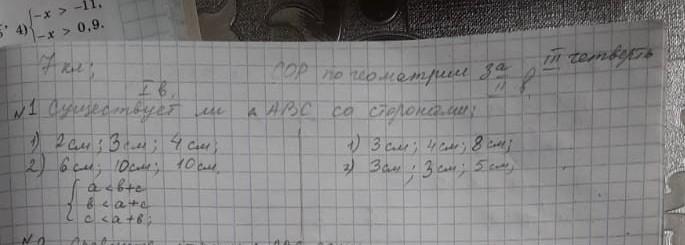 4) { -x > -11,
-x > 0,9.
7 кл; СОР по геометрии за III четверть
I в. II в
№1 Существует ли △ ABC со сторонами;
1) 2см; 3см; 4см; 1) 3см; 4см; 8см;
2) 6см; 10см; 10см. 2) 3см; 3см; 5см;
{ a < b+c
b < a+c
c < a+b;